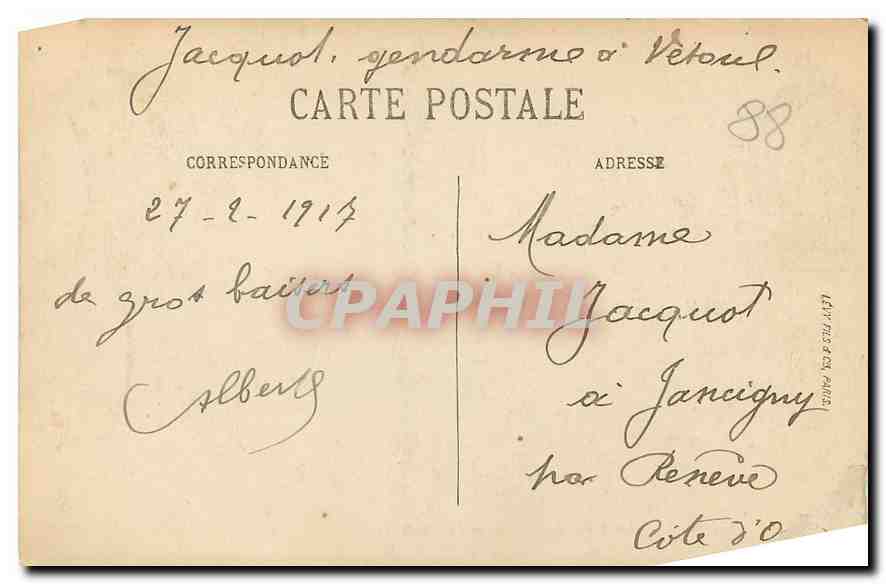 Jacquot, gendarme à Vesoul.
CARTE POSTALE
88
CORRESPONDANCE
27-2-1917
de gros baisers
Albert
ADRESSE
Madame
Jacquot
à Jancigny
par Renève
Côte d'O
LÉVY FILS & CIE, PARIS
CPAPHIL